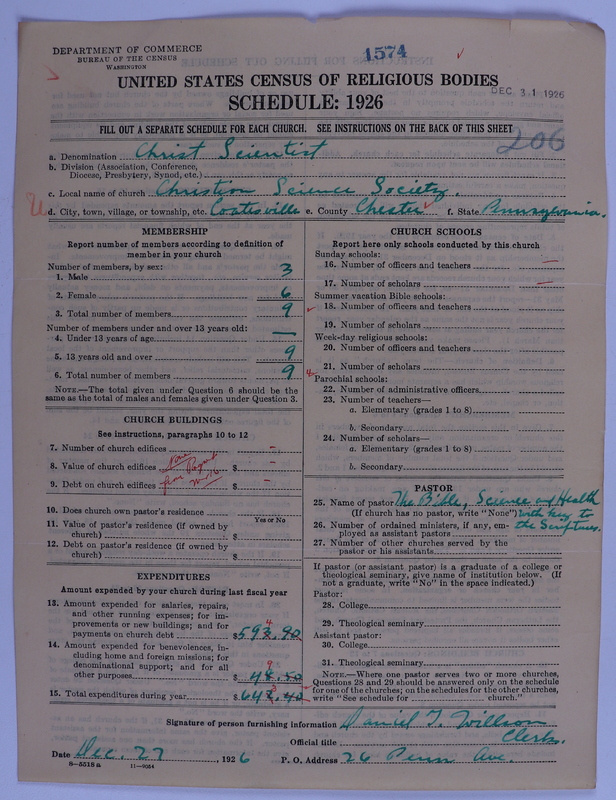 DEPARTMENT OF COMMERCE
BUREAU OF THE CENSUS
WASHINGTON
1574
UNITED STATES CENSUS OF RELIGIOUS BODIES
DEC 31 1926
SCHEDULE: 1926
FILL OUT A SEPARATE SCHEDULE FOR EACH CHURCH. SEE INSTRUCTIONS ON THE BACK OF THIS SHEET
206
a. Denomination Christ Scientist
b. Division (Association, Conference,
Diocese, Presbytery, Synod, etc.)
c. Local name of church Christian Science Society.
d. City, town, village, or township, etc. Coatesville e. County Chester f. State Pennsylvania.
MEMBERSHIP
Report number of members according to definition of
member in your church
Number of members, by sex:
1. Male 3
2. Female 6
3. Total number of members 9
Number of members under and over 13 years old:
4. Under 13 years of age —
5. 13 years old and over 9
6. Total number of members 9
NOTE.—The total given under Question 6 should be the
same as the total of males and females given under Question 3.
CHURCH BUILDINGS
See instructions, paragraphs 10 to 12
7. Number of church edifices –
8. Value of church edifices $ –
9. Debt on church edifices $ –
10. Does church own pastor's residence
Yes or No
11. Value of pastor's residence (if owned by
church) $
12. Debt on pastor's residence (if owned by
church) $
EXPENDITURES
Amount expended by your church during last fiscal year
13. Amount expended for salaries, repairs,
and other running expenses; for im-
provements or new buildings; and for
payments on church debt $593.90
14. Amount expended for benevolences, in-
cluding home and foreign missions; for
denominational support; and for all
other purposes 48.50
15. Total expenditures during year $642.40
CHURCH SCHOOLS
Report here only schools conducted by this church
Sunday schools:
16. Number of officers and teachers —
17. Number of scholars —
Summer vacation Bible schools:
18. Number of officers and teachers
19. Number of scholars
Week-day religious schools:
20. Number of officers and teachers
21. Number of scholars
Parochial schools:
22. Number of administrative officers
23. Number of teachers—
a. Elementary (grades 1 to 8)
b. Secondary
24. Number of scholars—
a. Elementary (grades 1 to 8)
b. Secondary
PASTOR
25. Name of pastor The Bible, Science and Health
(If church has no pastor, write "None") with key to
26. Number of ordained ministers, if any, em- the Scriptures.
ployed as assistant pastors
27. Number of other churches served by the
pastor or his assistants
If pastor (or assistant pastor) is a graduate of a college or
theological seminary, give name of institution below. (If
not a graduate, write "No" in the space indicated.)
Pastor:
28. College
29. Theological seminary
Assistant pastor:
30. College
31. Theological seminary
NOTE.—Where one pastor serves two or more churches,
Questions 28 and 29 should be answered only on the schedule
for one of the churches; on the schedules for the other churches,
write "See schedule for church."
Signature of person furnishing information Daniel T. Willson
Official title Clerk.
Date Dec. 27, 1926 P. O. Address 26 Penn Ave.
8—5518a 11—9054